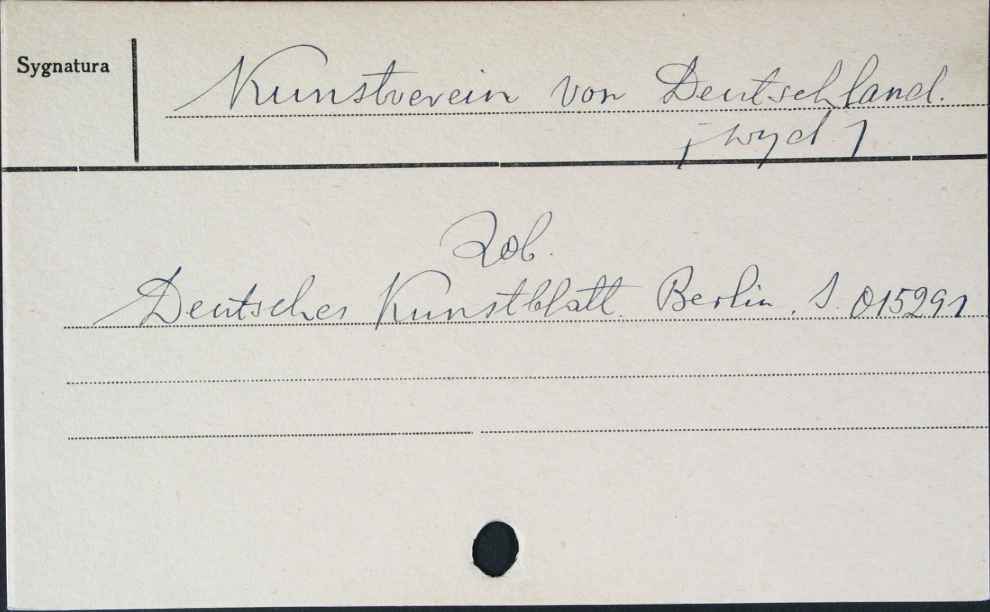 Sygnatura
Kunstverein von Deutschland.
[wyd]
Zob.
Deutsches Kunstblatt. Berlin. S. 015291